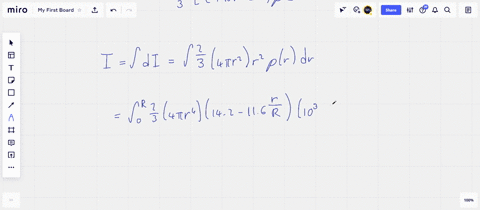 miro My First Board Share
3
I = ∫ dI = ∫ 2/3 (4πr²) r² ρ(r) dr
= ∫₀ᴿ 2/3 (4πr⁴) (14.2 - 11.6 r/R) (10³
100%